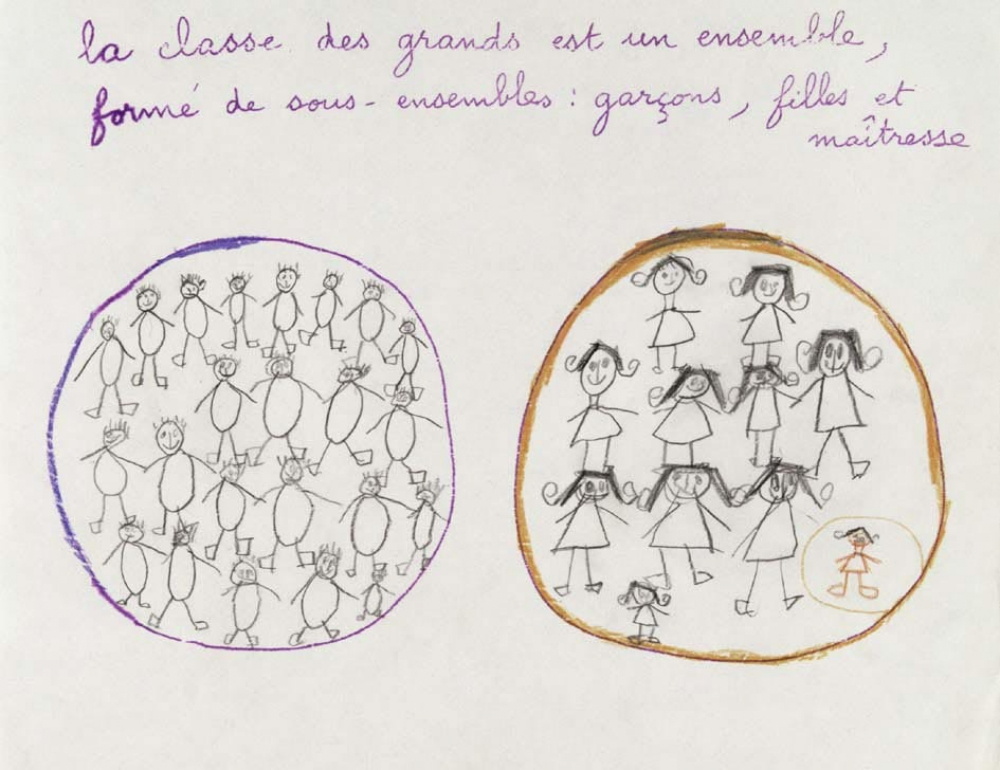 la classe des grands est un ensemble,
formé de sous-ensembles : garçons, filles et
maîtresse